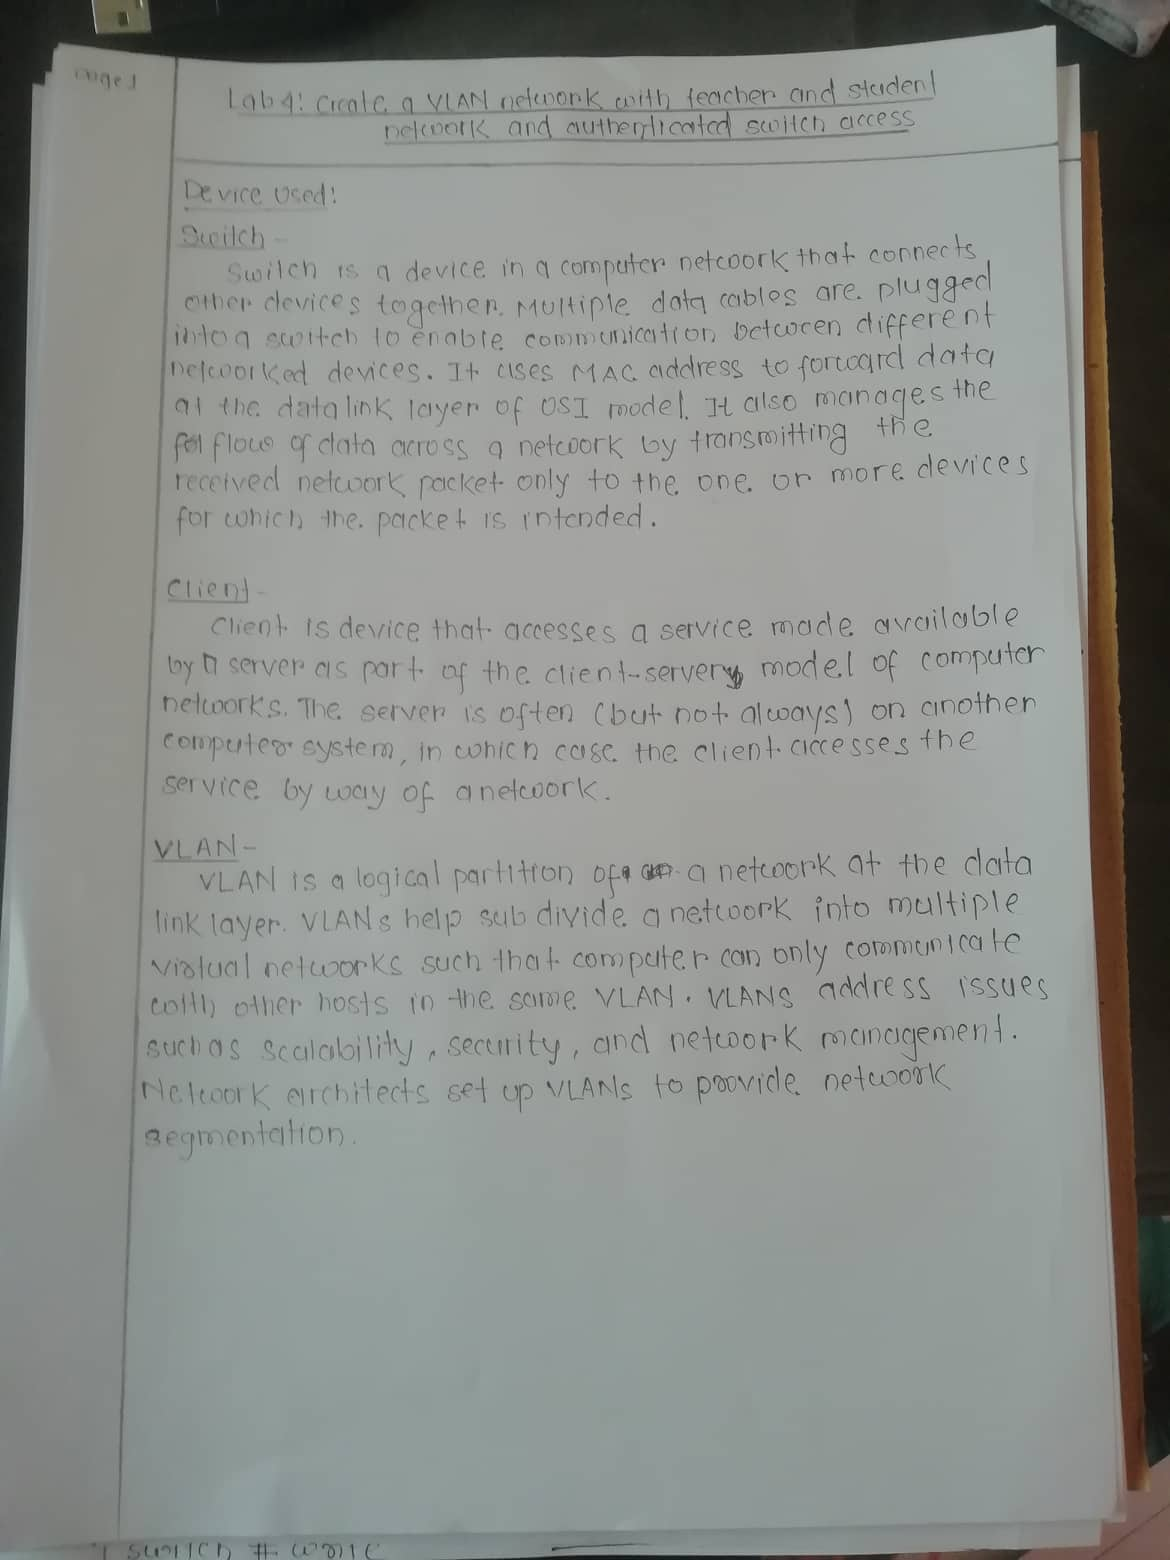 page 1
Lab 4: Create a VLAN network with teacher and student
network and authenticated switch access
Device Used:
Switch -
Switch is a device in a computer network that connects
other devices together. Multiple data cables are plugged
into a switch to enable communication between different
networked devices. It uses MAC address to forward data
at the data link layer of OSI model. It also manages the
flow of data across a network by transmitting the
received network packet only to the one or more devices
for which the packet is intended.
Client -
Client is device that accesses a service made available
by a server as part of the client-server model of computer
networks. The server is often (but not always) on another
computer system, in which case the client accesses the
service by way of a network.
VLAN -
VLAN is a logical partition of a network at the data
link layer. VLANs help subdivide a network into multiple
virtual networks such that computer can only communicate
with other hosts in the same VLAN. VLANS address issues
such as scalability, security, and network management.
Network architects set up VLANs to provide network
segmentation.
switch # write